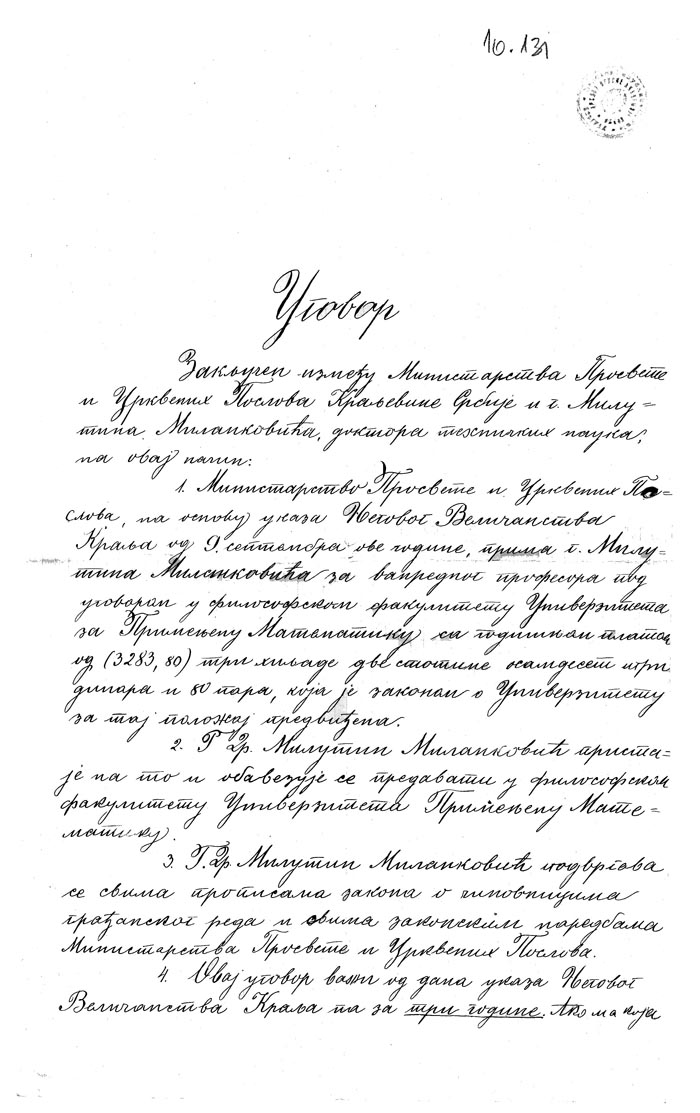 10.131
Уговор
Закључен између Министарства Просвете
и Црквених Послова Краљевине Србије и г. Милу=
тина Миланковића, доктора техничких наука,
на овај начин:
1. Министарство Просвете и Црквених По=
слова, на основу указа Његовог Величанства
Краља од 9. септембра ове године, прима г. Милу=
тина Миланковића за ванредног професора под
уговором у филосфском факултету Универзитета
за Примењену Математику са годишњом платом
од (3283,80) три хиљаде две стотине осамдесет и три
динара и 80 пара, која је законом о Универзитету
за тај положај предвиђена.
2. Г Др. Милутин Миланковић приста=
је на то и обавезује се предавати у филосфском
факултету Универзитета Примењену Мате=
матику.
3. Г. Др Милутин Миланковић подвргава
се свима прописима закона о чиновницима
грађанског реда и свима законским наредбама
Министарства Просвете и Црквених Послова.
4. Овај уговор важи од дана указа Његовог
Величанства Краља па за три године. Ако ма која